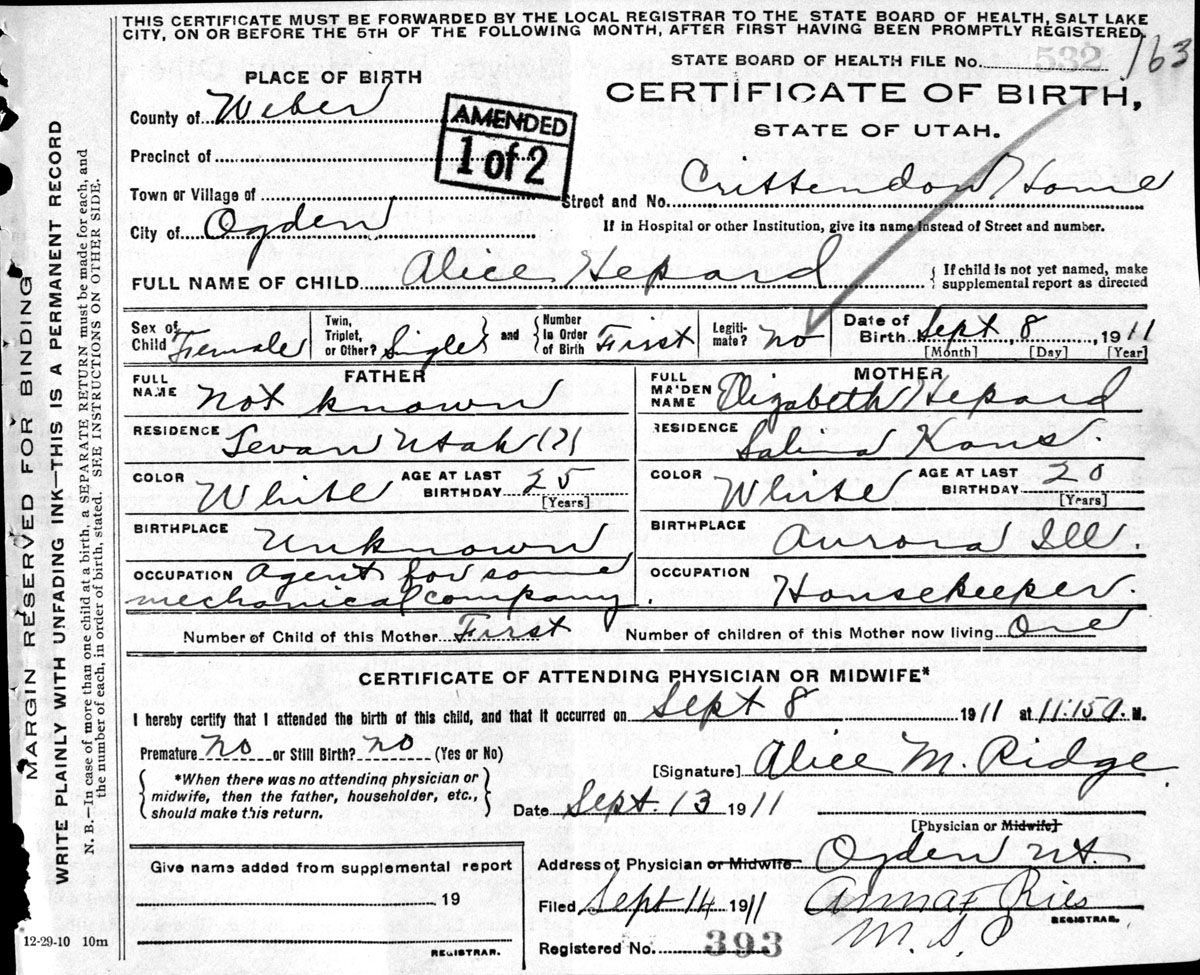 THIS CERTIFICATE MUST BE FORWARDED BY THE LOCAL REGISTRAR TO THE STATE BOARD OF HEALTH, SALT LAKE
CITY, ON OR BEFORE THE 5TH OF THE FOLLOWING MONTH, AFTER FIRST HAVING BEEN PROMPTLY REGISTERED.
STATE BOARD OF HEALTH FILE No. 532 163
PLACE OF BIRTH
CERTIFICATE OF BIRTH,
STATE OF UTAH.
County of Weber
AMENDED
1 of 2
Precinct of
Town or Village of
Street and No. Crittendon Home
City of Ogden
If in Hospital or other Institution, give its name instead of Street and number.
FULL NAME OF CHILD Alice Hepard
{ If child is not yet named, make
supplemental report as directed
Sex of Child Female
Twin, Triplet, or Other? Single } and { Number In Order of Birth First
Legitimate? No
Date of Birth Sept, 8, 1911
[Month] [Day] [Year]
FATHER
FULL NAME Not known
RESIDENCE Levan Utah (?)
COLOR White AGE AT LAST BIRTHDAY 25
[Years]
BIRTHPLACE Unknown
OCCUPATION Agent for some
mechanical company.
MOTHER
FULL MAIDEN NAME Elizabeth Hepard
RESIDENCE Salina Kans.
COLOR White AGE AT LAST BIRTHDAY 20
[Years]
BIRTHPLACE Aurora Ill.
OCCUPATION Housekeeper.
Number of Child of this Mother First Number of children of this Mother now living One
CERTIFICATE OF ATTENDING PHYSICIAN OR MIDWIFE*
I hereby certify that I attended the birth of this child, and that it occurred on Sept 8 1911 at 11:15 a. M.
Premature No or Still Birth? No (Yes or No)
{ *When there was no attending physician or
midwife, then the father, householder, etc.,
should make this return. }
[Signature] Alice M. Ridge
Date Sept. 13 1911
[Physician or Midwife]
Give name added from supplemental report
19
REGISTRAR.
Address of Physician or Midwife Ogden Ut.
Filed Sept 14 1911 Ries
M. D.
REGISTRAR.
Registered No. 393
MARGIN RESERVED FOR BINDING
WRITE PLAINLY WITH UNFADING INK—THIS IS A PERMANENT RECORD
N. B.—In case of more than one child at a birth, a SEPARATE RETURN must be made for each, and
the number of each, in order of birth, stated. SEE INSTRUCTIONS ON OTHER SIDE.
12-29-10 10m